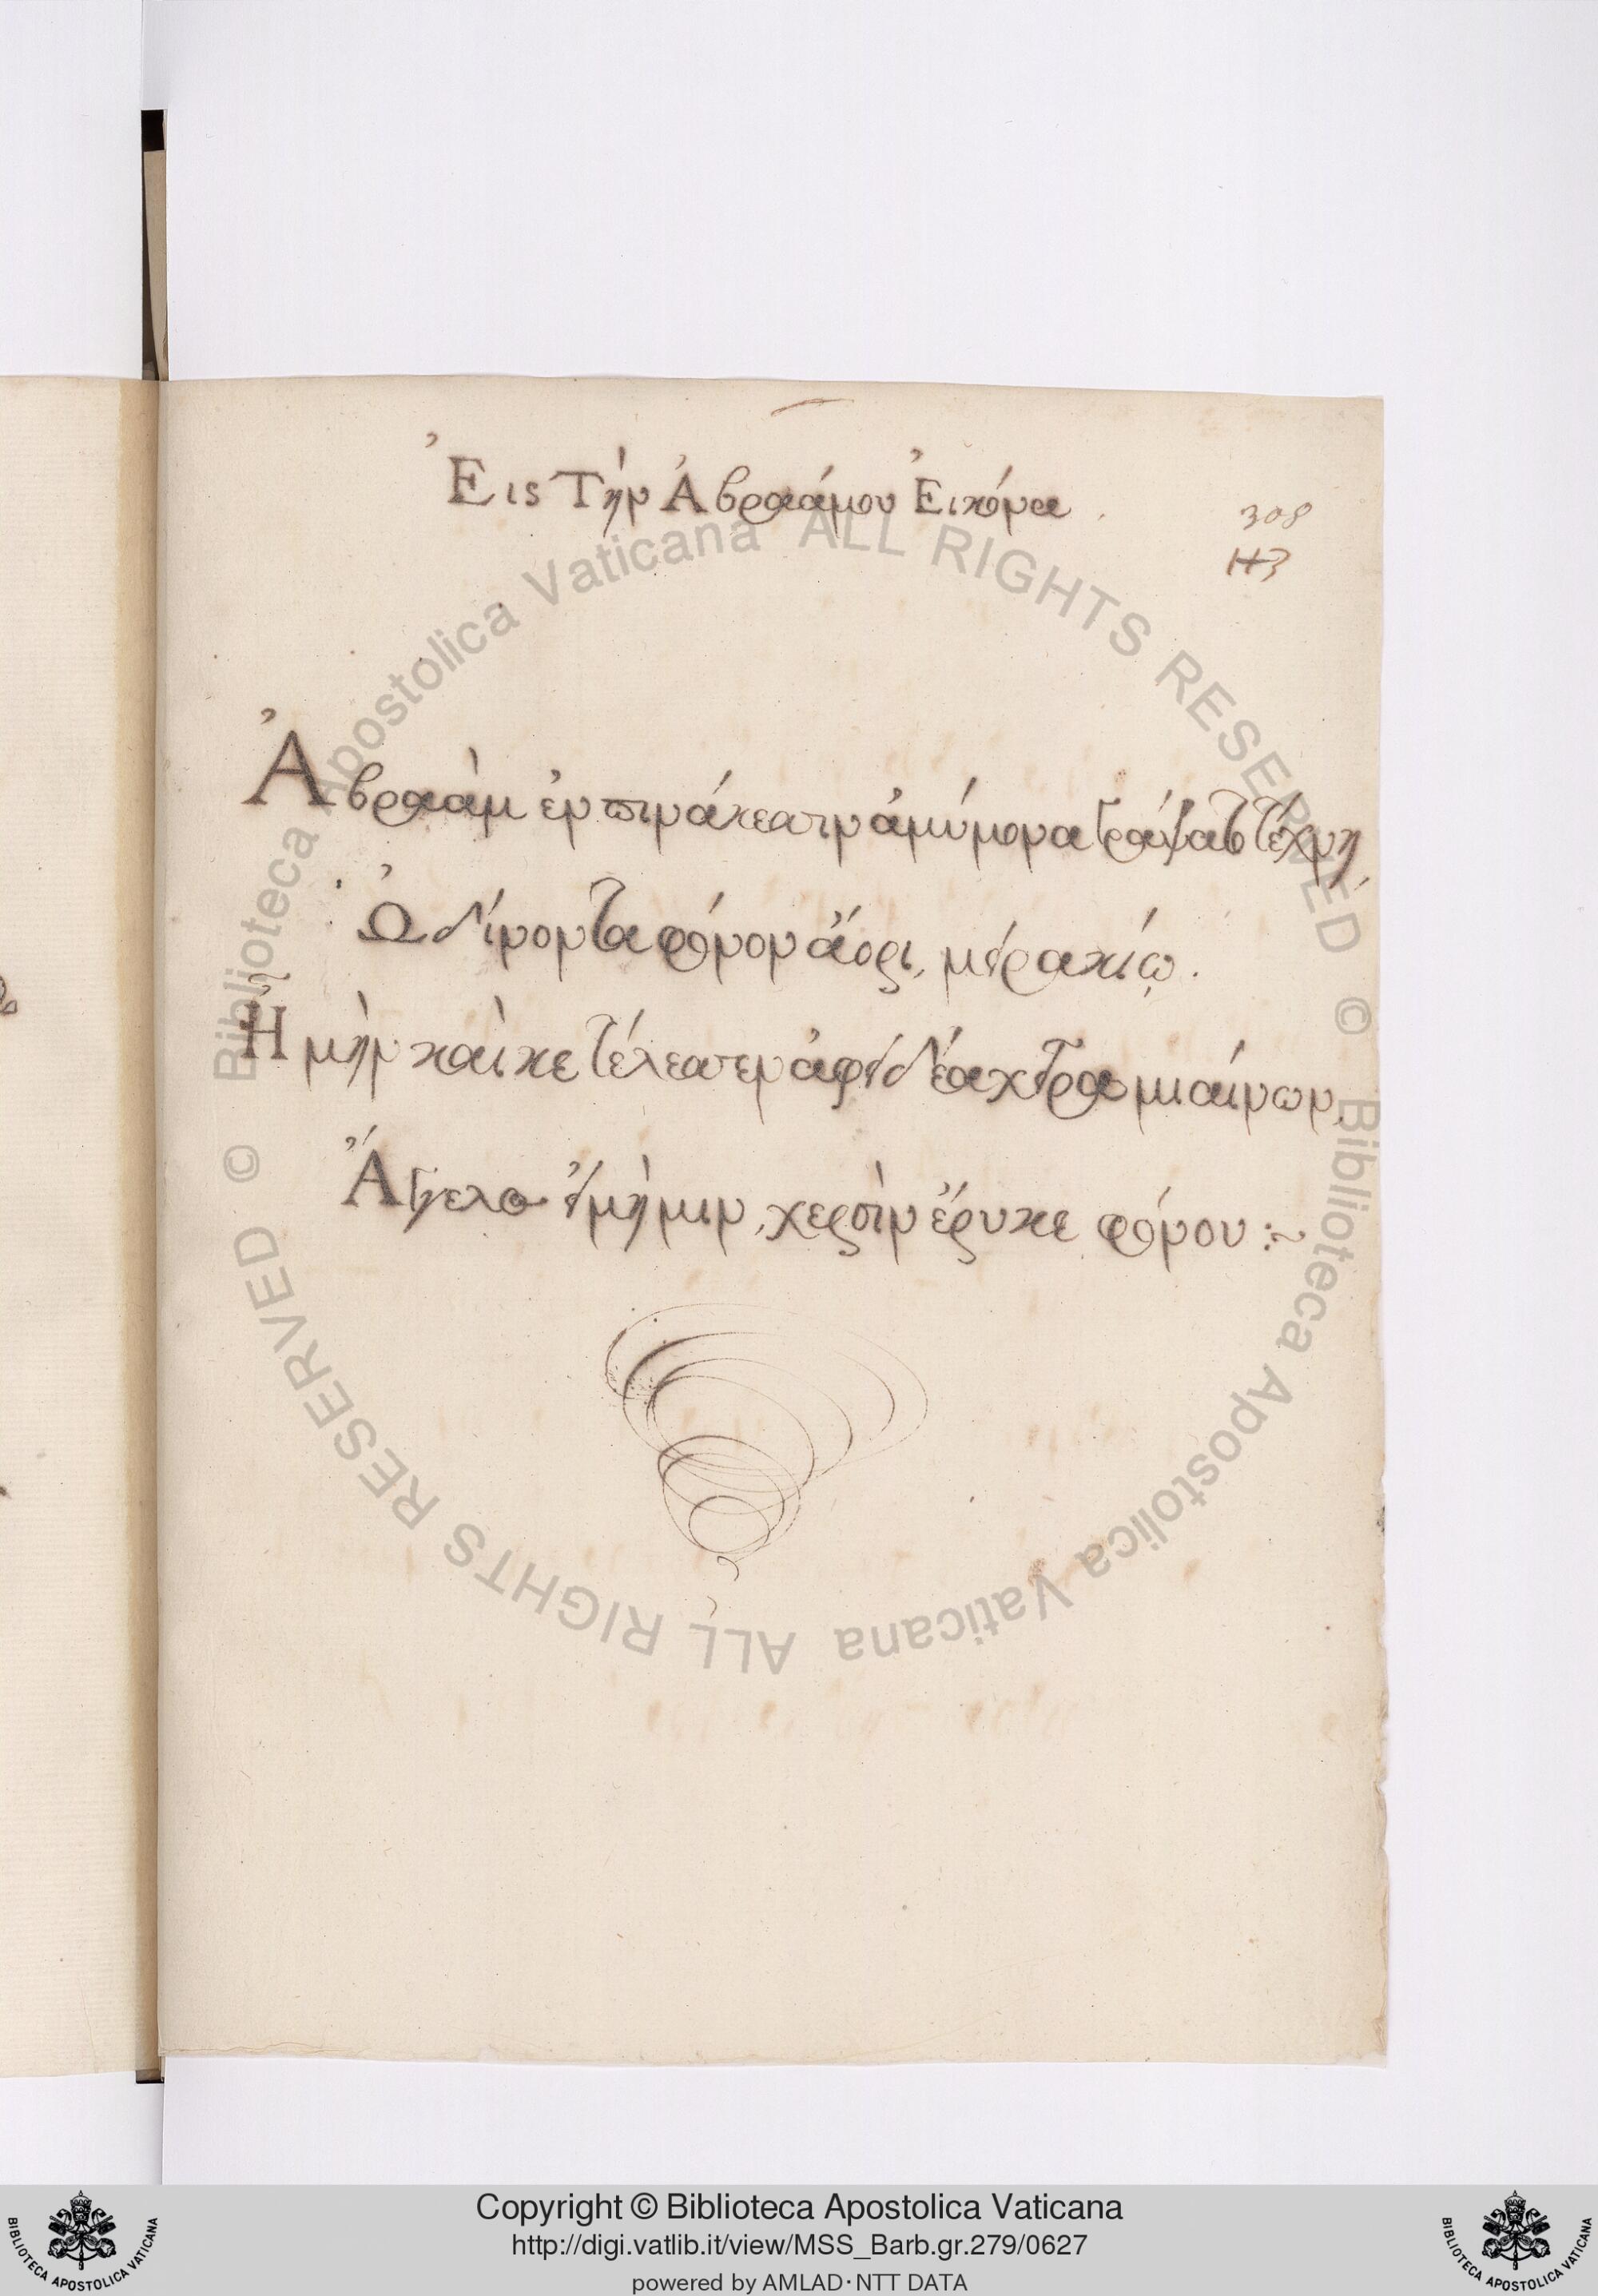 Ἐις Τὴν Ἀβραάμου Ἐικόνα.
308
113
Ἀβραὰμ ἐν πινάκεσσιν ἀμύμονα γράψατο τέχνη
Ὠδίνοντα φόνον ἄορι, μειρακίῳ.
Ἦ μὴν καὶ κε τέλεσσεν ἀφειδέα χεῖρα μιαίνων,
Ἄγγελος εἰ μὴ μιν, χερσὶν ἔρυκε φόνου :~
Copyright © Biblioteca Apostolica Vaticana
http://digi.vatlib.it/view/MSS_Barb.gr.279/0627
powered by AMLAD·NTT DATA
BIBLIOTECA APOSTOLICA VATICANA
BIBLIOTECA APOSTOLICA VATICANA
© Biblioteca Apostolica Vaticana ALL RIGHTS RESERVED
© Biblioteca Apostolica Vaticana ALL RIGHTS RESERVED